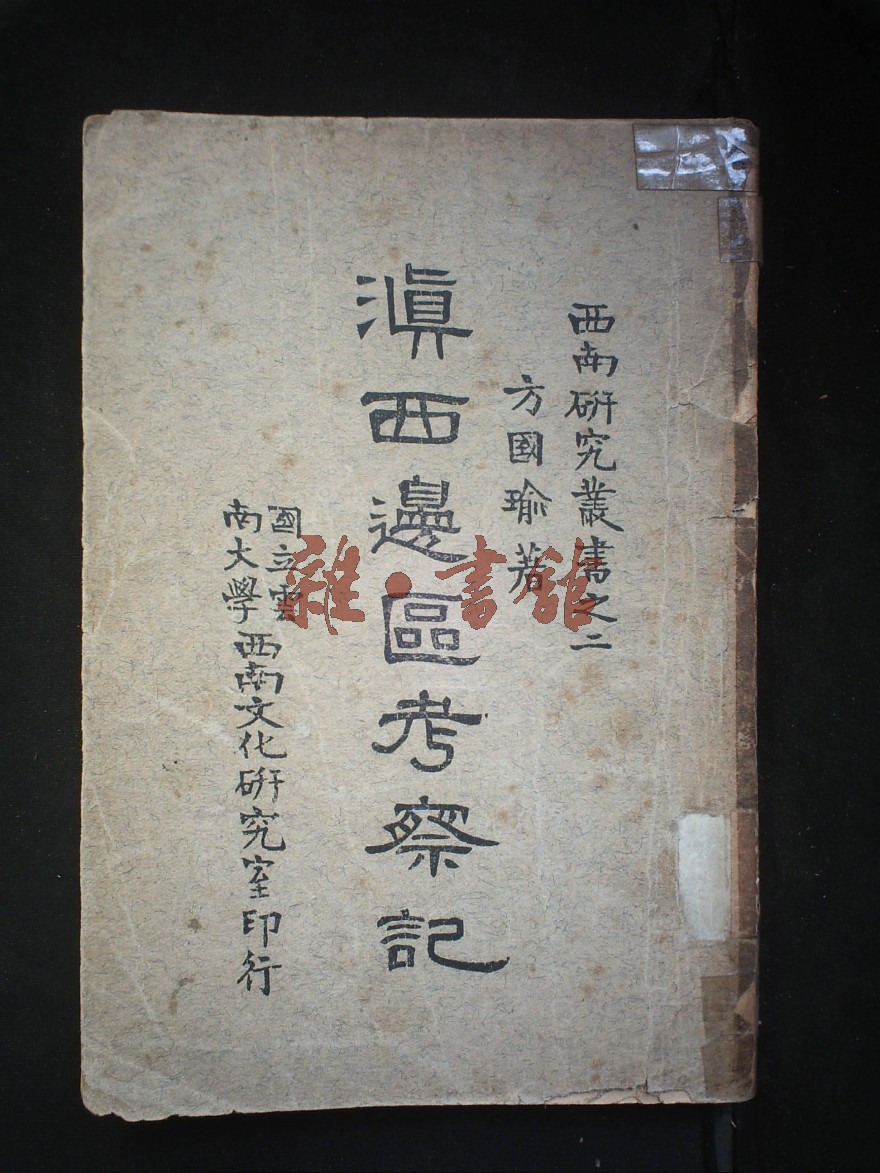 西南研究叢書之二
方國瑜著
滇西邊區考察記
國立雲南大學西南文化研究室印行
雜·書館